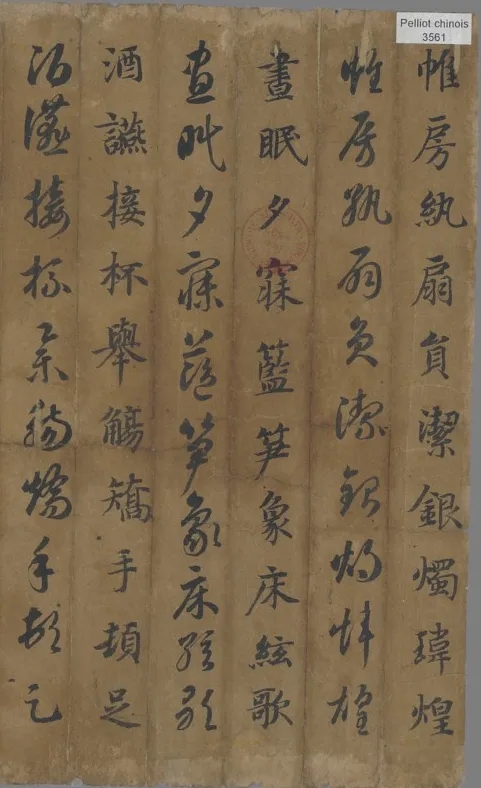 Pelliot chinois
3561
帷房紈扇員潔銀燭瑋煌
帷房紈扇員潔銀燭煒煌
晝眠夕寐藍笋象床絃歌
晝眠夕寐藍笋象床絃歌
酒讌接杯舉觴矯手頓足
酒讌接杯舉觴矯手頓足